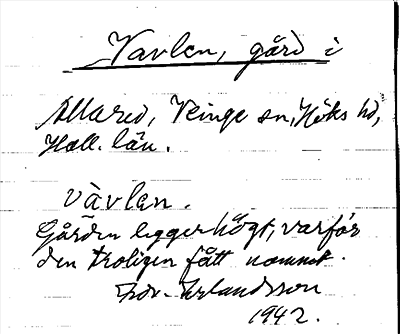 Vavlen, gård i
Allared, Veinge sn, Höks hd,
Hall. län.
vàvlan.
Gården ligger högt, varför
den troligen fått namnet.
Erlandsson
1942.